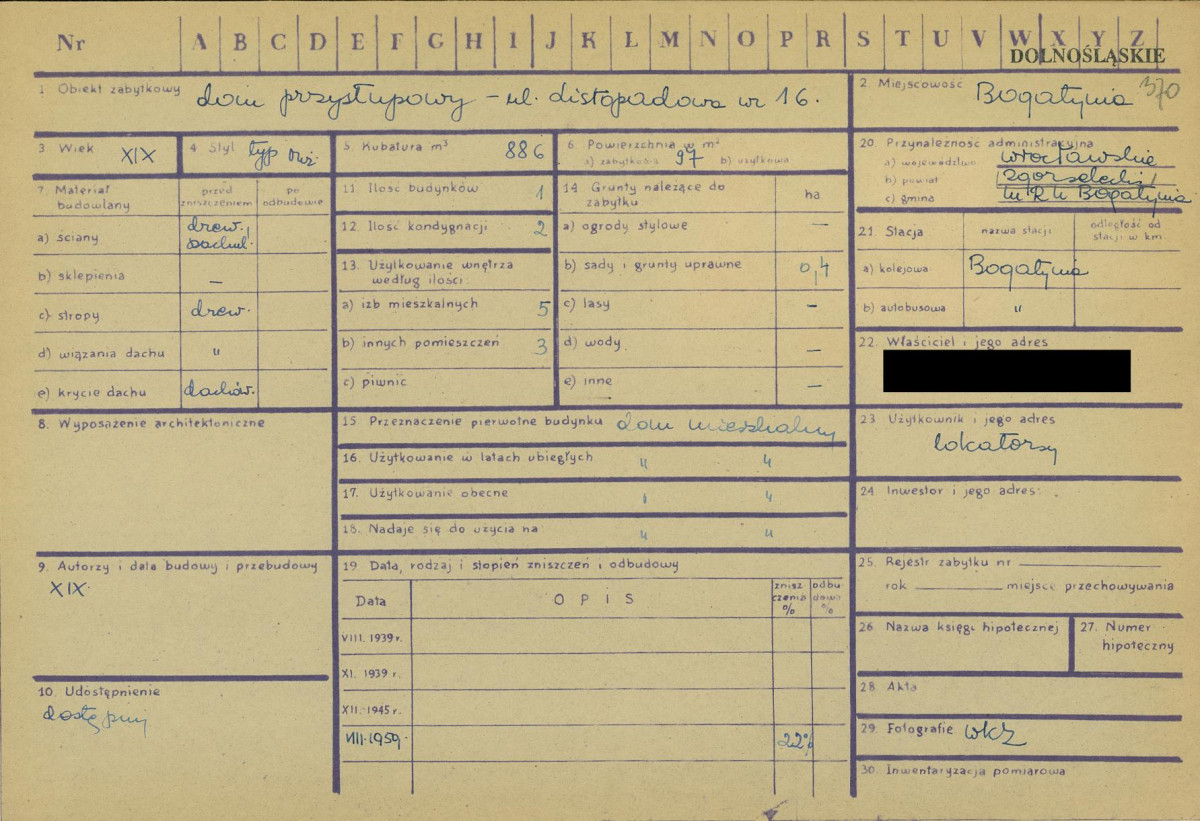 Nr A B C D E F G H I J K L M N O P R S T U V W X Y Z
DOLNOŚLĄSKIE
1 Obiekt zabytkowy dom przysłupowy – ul. Listopadowa nr 16.
2. Miejscowość Bogatynia 370
3 Wiek XIX
4 Styl typ
5. Kubatura m³ 886
6 Powierzchnia w m²
a) zabytkowa 97 b) użytkowa
20. Przynależność administracyjna
a) województwo wrocławskie
b) powiat zgorzelecki
c) gmina Bogatynia
7. Materiał budowlany
przed zniszczeniem
po odbudowie
a) ściany drew.,
b) sklepienia —
c) stropy drew.
d) wiązania dachu "
e) krycie dachu dachów.
11. Ilość budynków 1
12. Ilość kondygnacji 2
13. Użytkowanie wnętrza
według ilości:
a) izb mieszkalnych 5
b) innych pomieszczeń 3
c) piwnic
14 Grunty należące do
zabytku
ha
a) ogrody stylowe —
b) sady i grunty uprawne 0,4
c) lasy –
d) wody —
e) inne —
21. Stacja
nazwa stacji
odległość od
stacji w km
a) kolejowa Bogatynia
b) autobusowa "
22. Właściciel i jego adres
8. Wyposażenie architektoniczne
15 Przeznaczenie pierwotne budynku dom mieszkalny
16. Użytkowanie w latach ubiegłych " "
17. Użytkowanie obecne " "
18. Nadaje się do użycia na " "
23 Użytkownik i jego adres
lokatorzy
24. Inwestor i jego adres:
9. Autorzy i data budowy i przebudowy
XIX.
19 Data, rodzaj i stopień zniszczeń i odbudowy
Data
OPIS
znisz
czenia
%
odbu
dowa
%
VIII. 1939 r.
XI. 1939 r.
XII. 1945 r.
VIII. 1959. 22%
25. Rejestr zabytku nr
rok miejsce przechowywania
26 Nazwa księgi hipotecznej
27. Numer
hipoteczny
10. Udostępnienie
dostępny
28. Akta
29. Fotografie WKZ
30. Inwentaryzacja pomiarowa